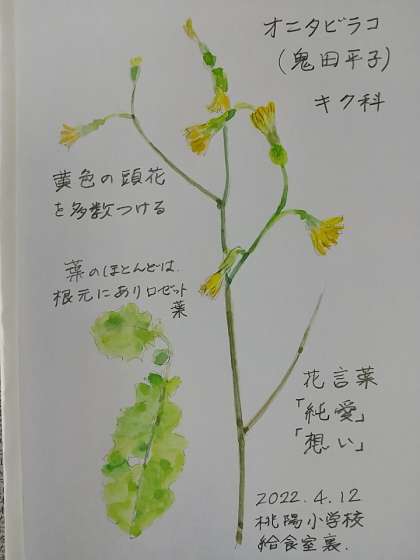 オニタビラコ
(鬼田平子)
キク科
黄色の頭花
を多数つける
葉のほとんどは
根元にありロゼット
葉
花言葉
「純愛」
「想い」
2022.4.12
桃陽小学校
給食室裏.